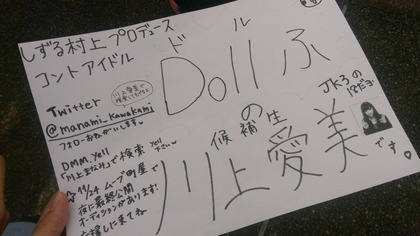 しずる村上プロデュース
コントアイドル
ドール
Dollふ
Twitter
川上愛美で
@manami_kawakami
フォローおねがいします。
JK3の
17だよ
の
候補生
川上愛美です♡
DMM.yell
「川上まなみ」で検索
yell
下さい
☆11/24 ムーブ町屋で
夜に最終公開
オーディションがあります!
応援しに来てね